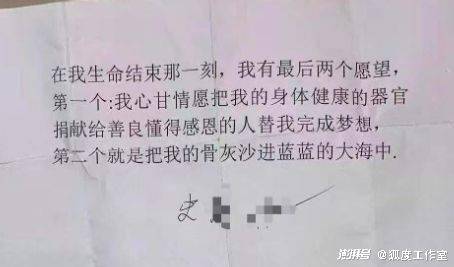 在我生命结束那一刻，我有最后两个愿望，
第一个:我心甘情愿把我的身体健康的器官
捐献给善良懂得感恩的人替我完成梦想，
第二个就是把我的骨灰沙进蓝蓝的大海中.
史
澎湃号 @狐度工作室